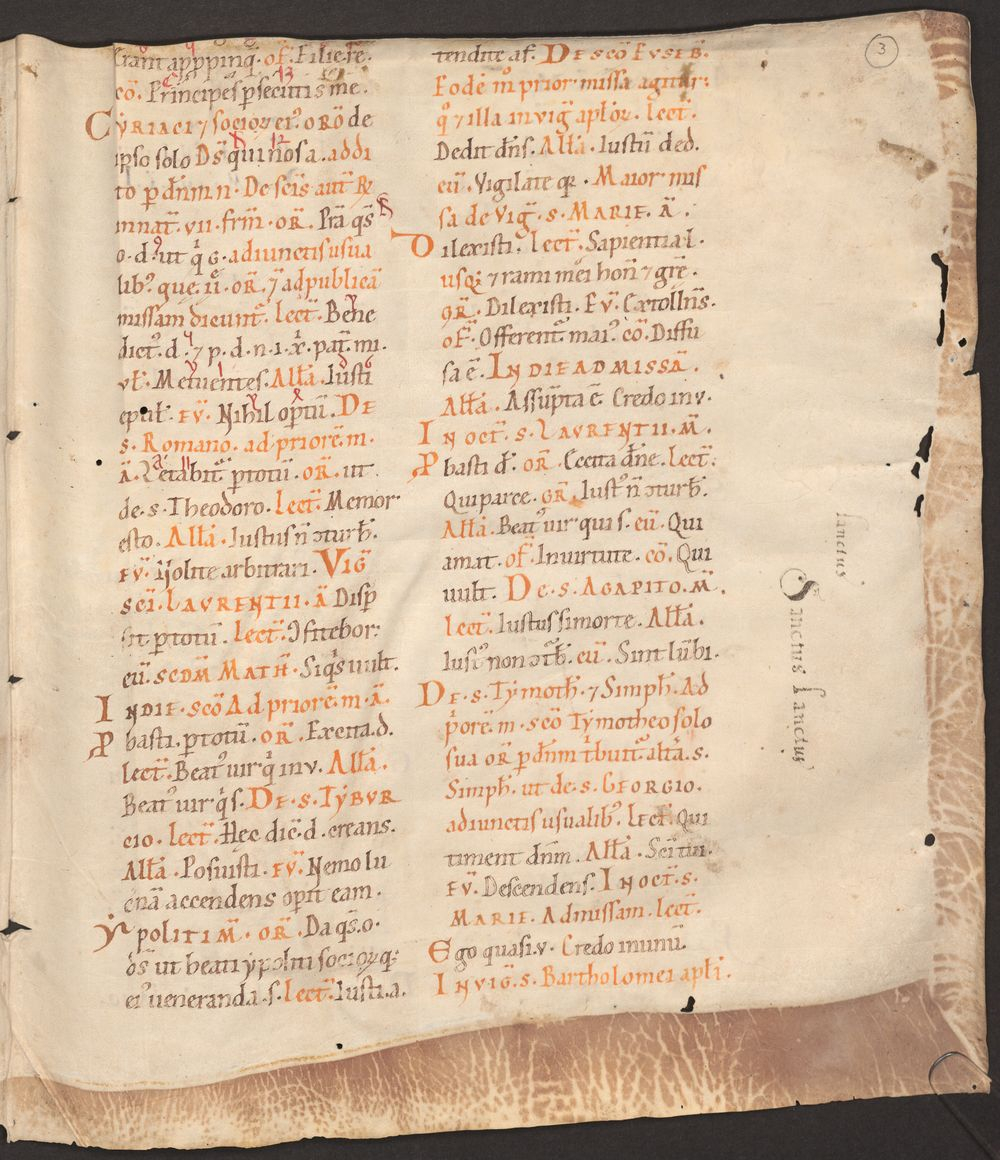 Erant appropinq̄. of̄. Filie rē.
cō. Principes ꝑsecuti s me.
Cyriaci ⁊ socioꝝ ei᷒. oRō de
ipso solo Ds̄ qui nos a. addi
to ꝑ dn̄m n. De scīs aūt
innat̄. vii. frm̄. oR̄. Prā qs̄
o. d. ut q G. adiunctis usua
lib᷒. que
missam dicunt̄. lect̄. Bene
dict᷒. d. ⁊ p. d. n. i. x̄. pat̄. mi.
vł. Metuentes. Alła. Iusti
epuł. ev̄. Nihil optū. De
s. Romano. ad priorē. m.
ā. Letabit̄ ꝑ totū. oR̄. ut
de. s. Theodoro. lect̄. Memor
esto. Alła. Iustus n̄ ꝯturb̄.
ev̄. Nolite arbitrari. Viḡ
scī. Lavrentii. ā Disp̄
sit ꝑ totū. lect̄. ꝯfitebor.
eū. scdm̄ Math̄. Siqs̄ uult.
In die. scō Ad priorē. m. ā.
Probasti. ꝑ totū. oR̄. Excita. d.
lect̄. Beat᷒ uir q̄ inv. Alła.
Beat᷒ uir q̄ s. De. s. Tybvr
cio. lect̄. Hec dic̄. d. creans.
Alła. Posuisti. ev̄. Nemo lu
cernā accendens opit eam.
Ypoliti m̄. oR̄. Da qs̄. o.
ds̄ ut beati ypoliti socioꝝ q;
ei᷒ ueneranda. s. lect̄. Iusti. a.
tendite af. De scō Evseb̄.
Eodē m prior missa agitur.
q ⁊ illa in viḡ aploꝝ. lect̄.
Dedit dn̄s. Alła. Iustū ded.
eū. Vigilate q. Maior mis
sa de Viḡ. s. Marie. ā.
Dilexisti. lect̄. Sapiential.
usq; ⁊ rami mei hon̄ ⁊ grē.
gR̄. Dilexisti. Ev̄. Extollns̄.
of̄. Offerent̄ mai᷒. cō. Diffu
sa ē. In die ad missā.
Alła. Assūpta ē Credo in v.
In oct̄. s. Lavrentii. m̄.
Probasti d̄. oR̄. Excita dn̄e. lect̄.
Qui parce. gR̄. Iust᷒ n̄ ꝯturb̄.
Alła. Beat᷒ uir qui s. eū. Qui
amat. of̄. In uirtute. cō. Qui
uult. De. s. Agapito. m̄.
lect̄. Iustus si morte. Alła.
Iust᷒ non ꝯt̄b. eū. Sint lūbi.
De. s. Tymoth̄. ⁊ Simph̄. Ad
priorē. m. scō Tymotheo solo
sua oR̄ ꝑ dn̄m tribuit᷒ altā. s.
Simph̄. ut de. s. Georgio.
adiunctis usualib᷒. lect̄. Qui
timent dn̄m. Alła. Scī tui.
Ev̄. Descendens. In oct̄. s.
Marie. Ad missam. lect̄.
Ego quasi. v. Credo in unū.
In viḡ. s. Bartholomei apłi.
3
sanctus
Sanctus sanctus